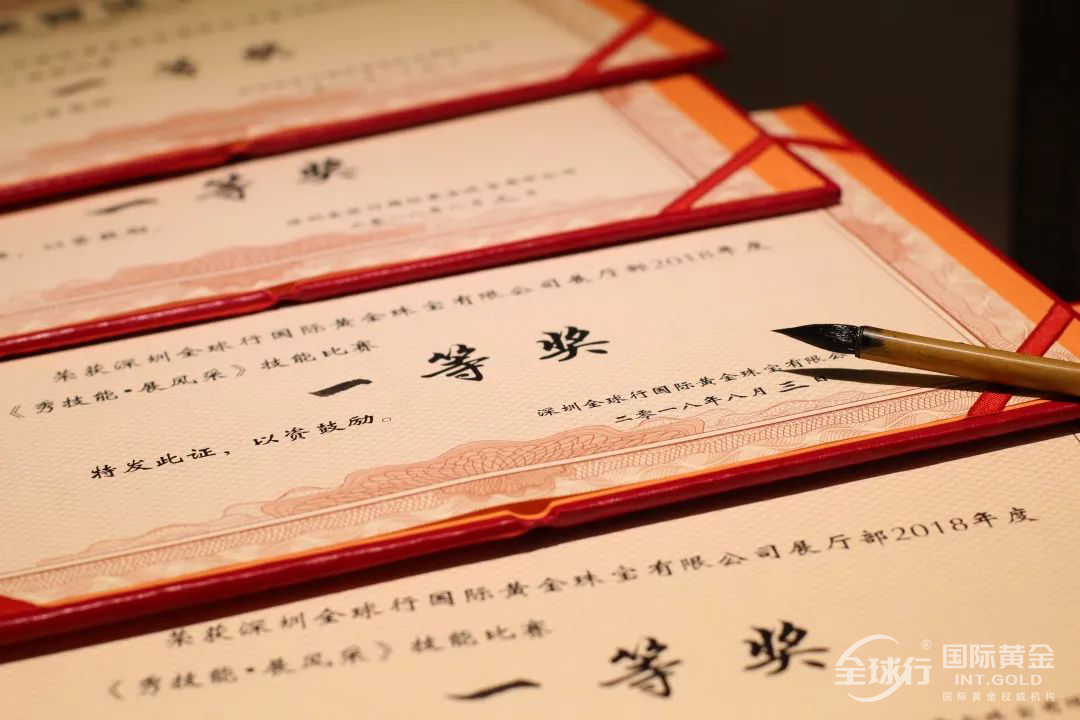 一等奖
一等奖
以资鼓励
荣获深圳全球行国际黄金珠宝有限公司展厅部2018年度
《秀技能·展风采》技能比赛
一等奖
特发此证，以资鼓励。
深圳全球行国际黄金珠宝有限公
二零一八年八月三日
荣获深圳全球行国际黄金珠宝有限公司展厅部2018年度
《秀技能·展风采》技能比赛
一等奖
全球行®
国际黄金
INT.GOLD
国际黄金权威机构